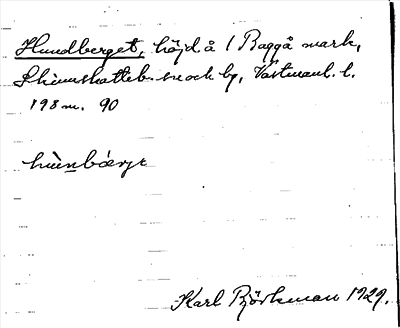 Hundberget, höjd å 1 Baggå mark,
Skinnskatteb. sn och bg, Västmanl. l.
198 m. 90
hùnbærjt
Karl Björkman 1929.